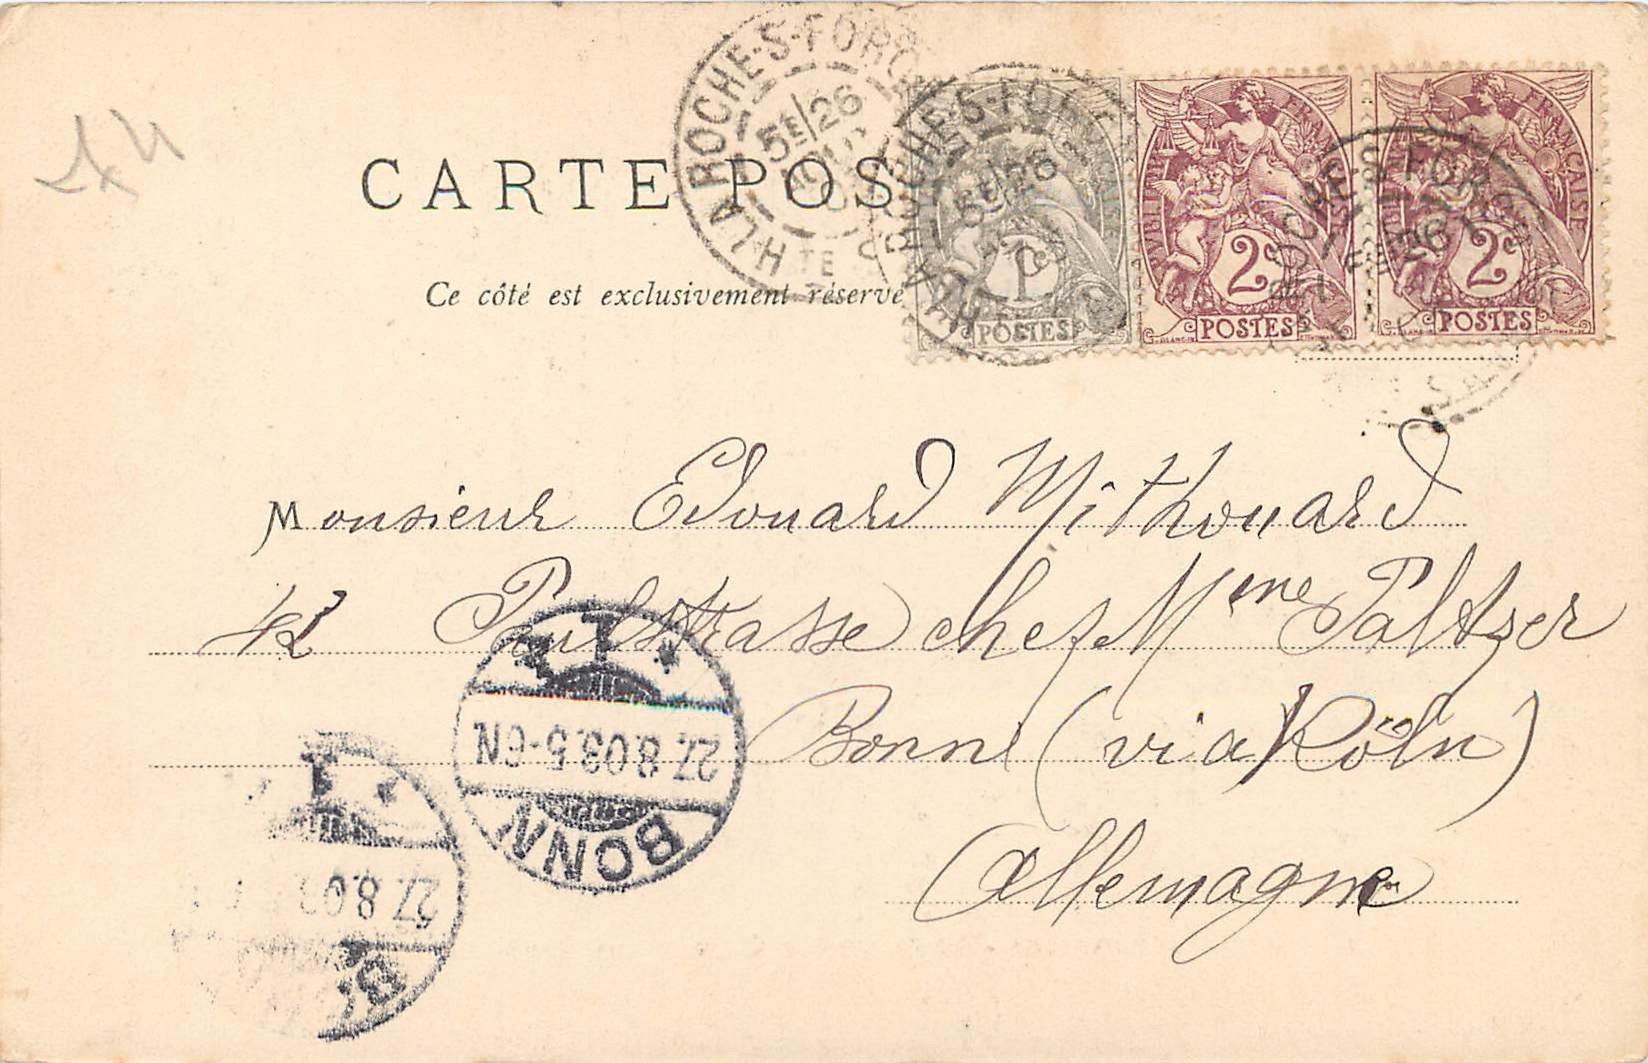 CARTE POS
Ce côté est exclusivement réservé
LA ROCHE-S-FORON
5E/26
HTE S
ROCHE-S-FORON
5E/26
ROCHE-S-FOR
26
SAV
RÉPUBLIQUE FRANÇAISE
1c
POSTES
RÉPUBLIQUE FRANÇAISE
2c
POSTES
RÉPUBLIQUE FRANÇAISE
2c
POSTES
Monsieur Edouard Mithouard
42 Paulstrasse chez Mme Paltzer
Bonn (via Köln)
Allemagne
BONN
27.8.03.5-6N
* 1
B
27.8.03
* 1